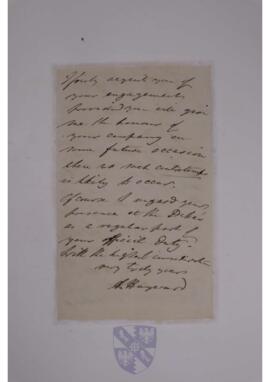 I fully acquit you of
your engagement
provided you will give
me the honour of
your company on
some future occasion
when no such
is likely to occur.
Of course I regard your
presence at the
as a regular part of
your official Duty.
With the highest consideration
very truly yours
A. Hayward